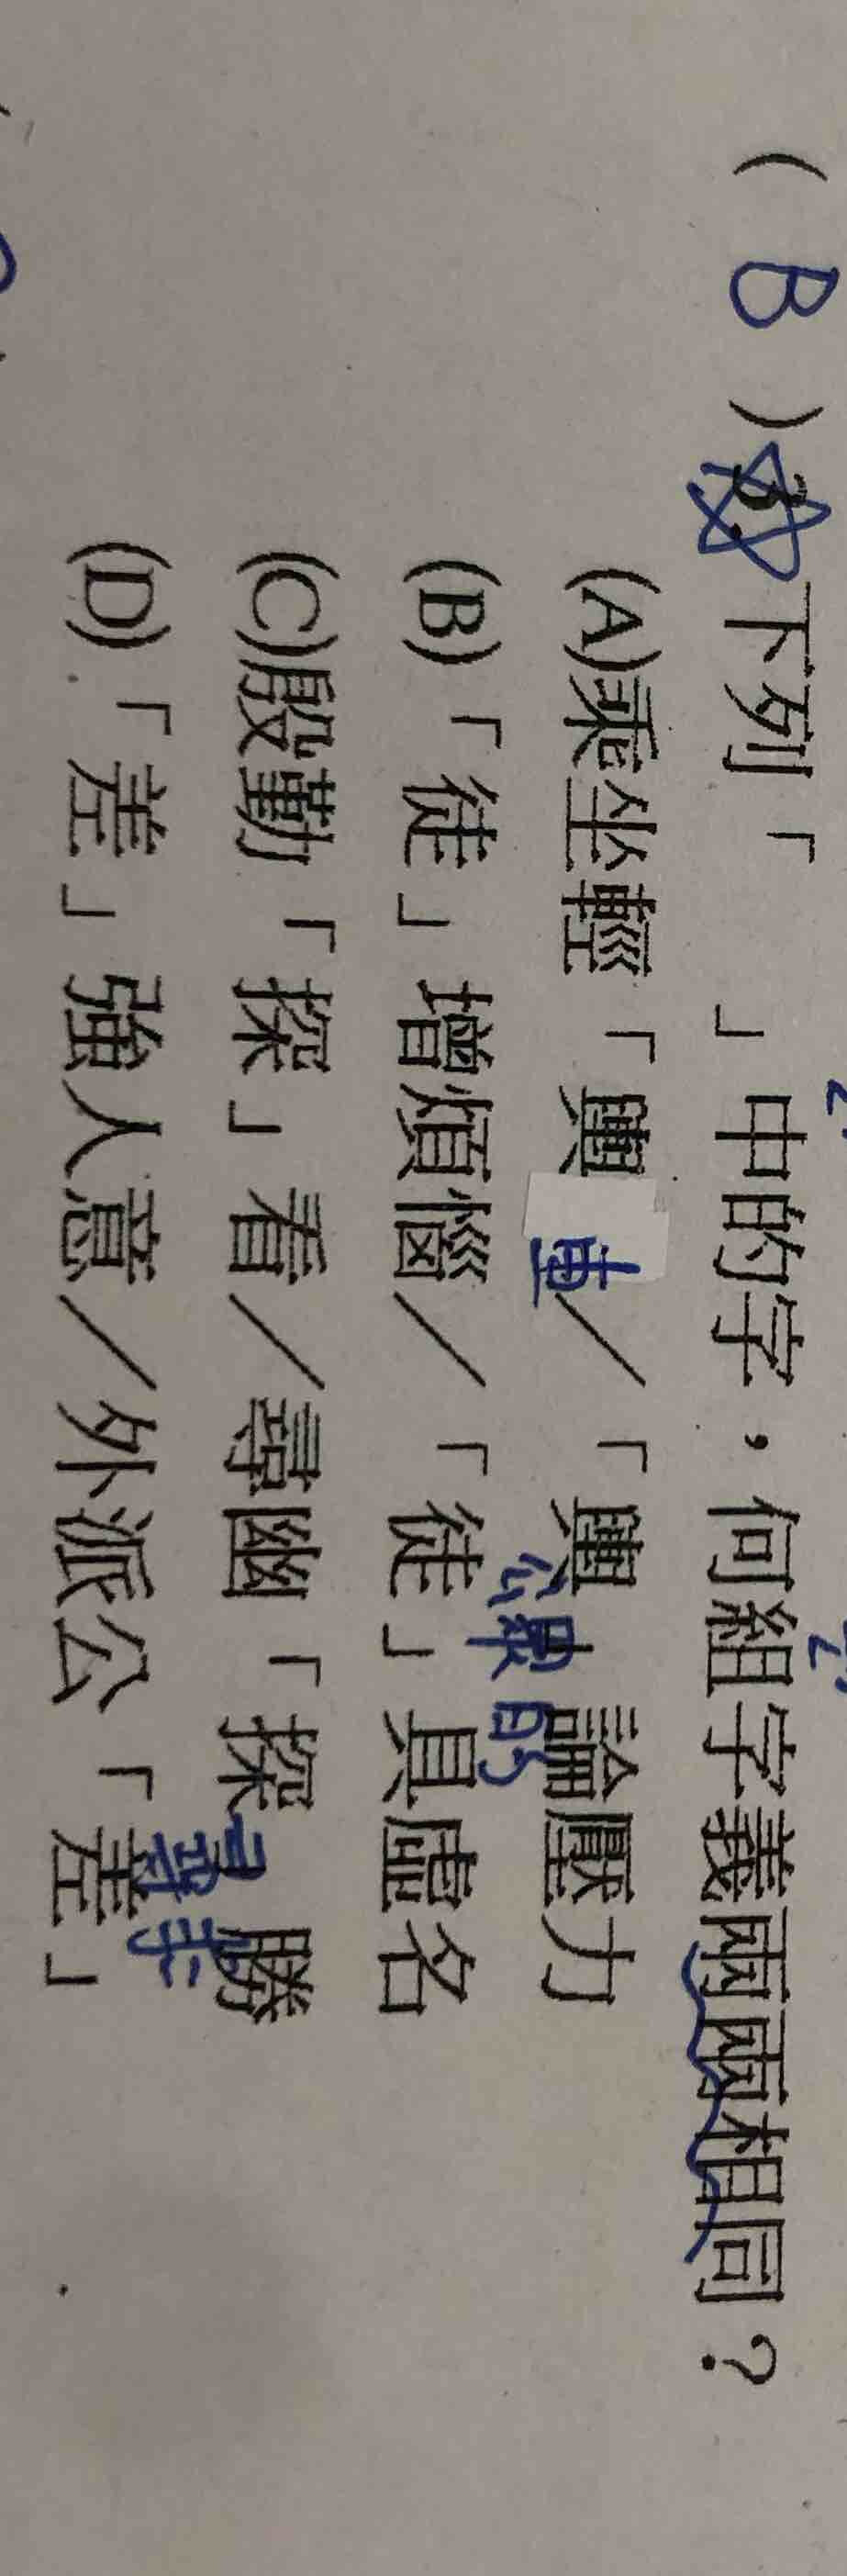 ( B ) 3. 下列「　」中的字，何組字義兩兩相同？
(A)乘坐輕「輿 車／「輿 論壓力
公眾的
(B)「徒」增煩惱／「徒」具虛名
(C)殷勤「探」看／尋幽「探 勝
尋找
(D)「差」強人意／外派公「差」